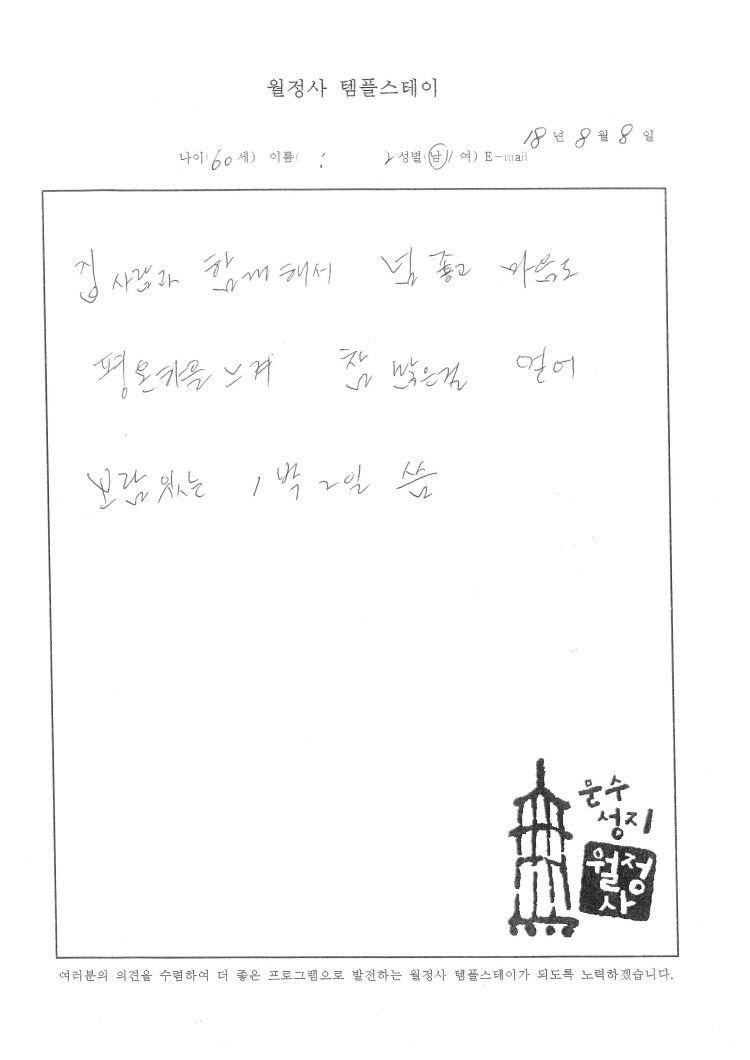 월정사 템플스테이
18년 8월 8일
나이(60세) 이름( 성별(남/여) E-mail
집사람과 함께해서 넘 좋고 마음도
평온하을 느껴 참 많은걸 얻어
보람있는 1박2일 씀
문수
성지
월정
사
여러분의 의견을 수렴하여 더 좋은 프로그램으로 발전하는 월정사 템플스테이가 되도록 노력하겠습니다.